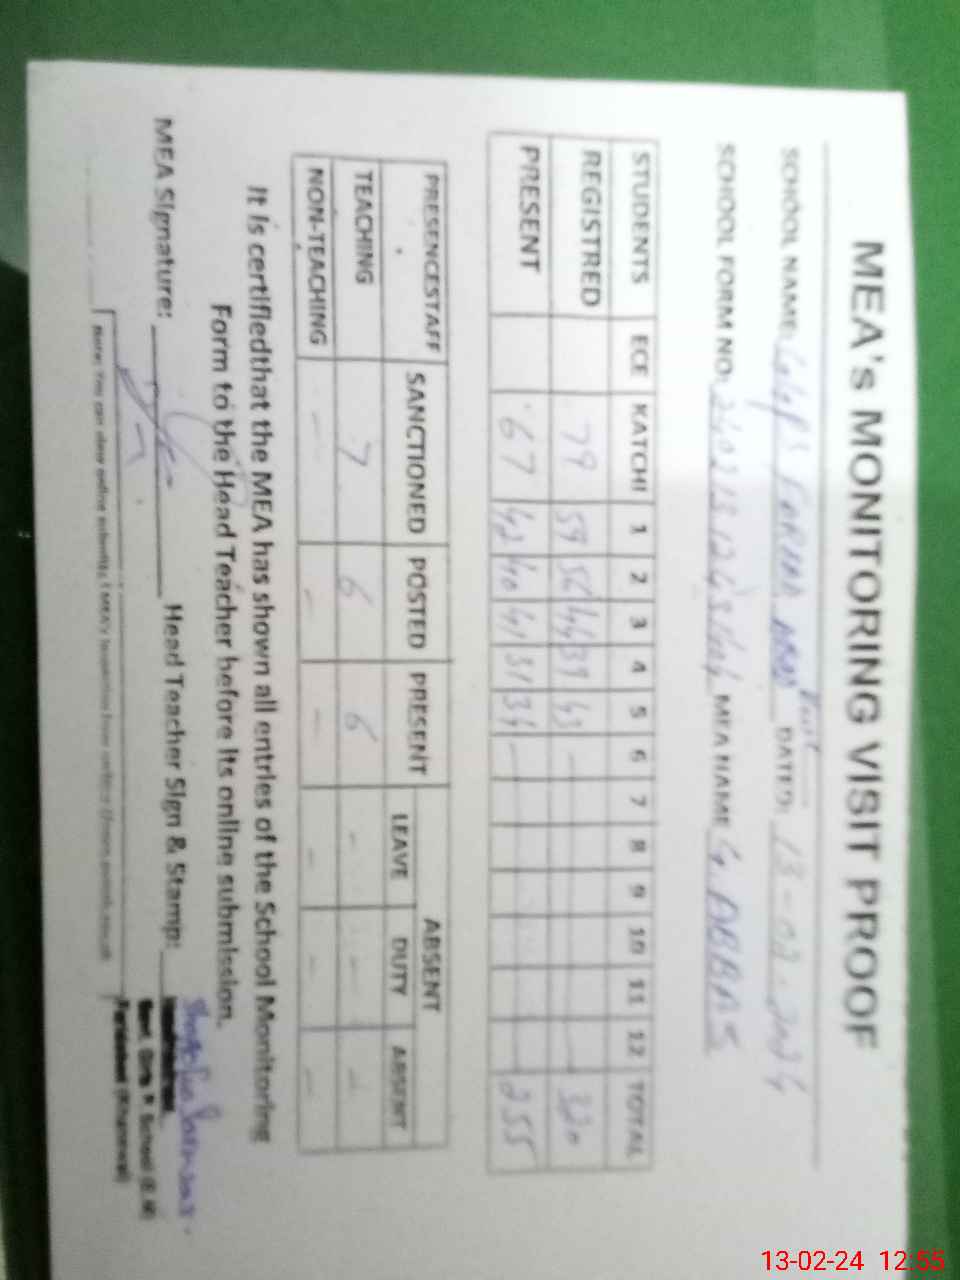 MEA's MONITORING VISIT PROOF
SCHOOL NAME: GGPS DATED: 13-02-2024
SCHOOL FORM NO: MEA NAME G. ABBAS
STUDENTS ECE KATCHI 1 2 3 4 5 6 7 8 9 10 11 12 TOTAL
REGISTRED 79 59 56 44 39 43 - 320
PRESENT 67 42 40 41 31 34 - 255
PRESENCESTAFF SANCTIONED POSTED PRESENT ABSENT
LEAVE DUTY ABSENT
TEACHING 7 6 6 - - -
NON-TEACHING - - - - - -
It is certifiedthat the MEA has shown all entries of the School Monitoring
Form to the Head Teacher before its online submission.
MEA Signature: Head Teacher Sign & Stamp:
Govt. Girls P. School (E.M)
(Khanewal)
Note: You can view online
13-02-24 12:55